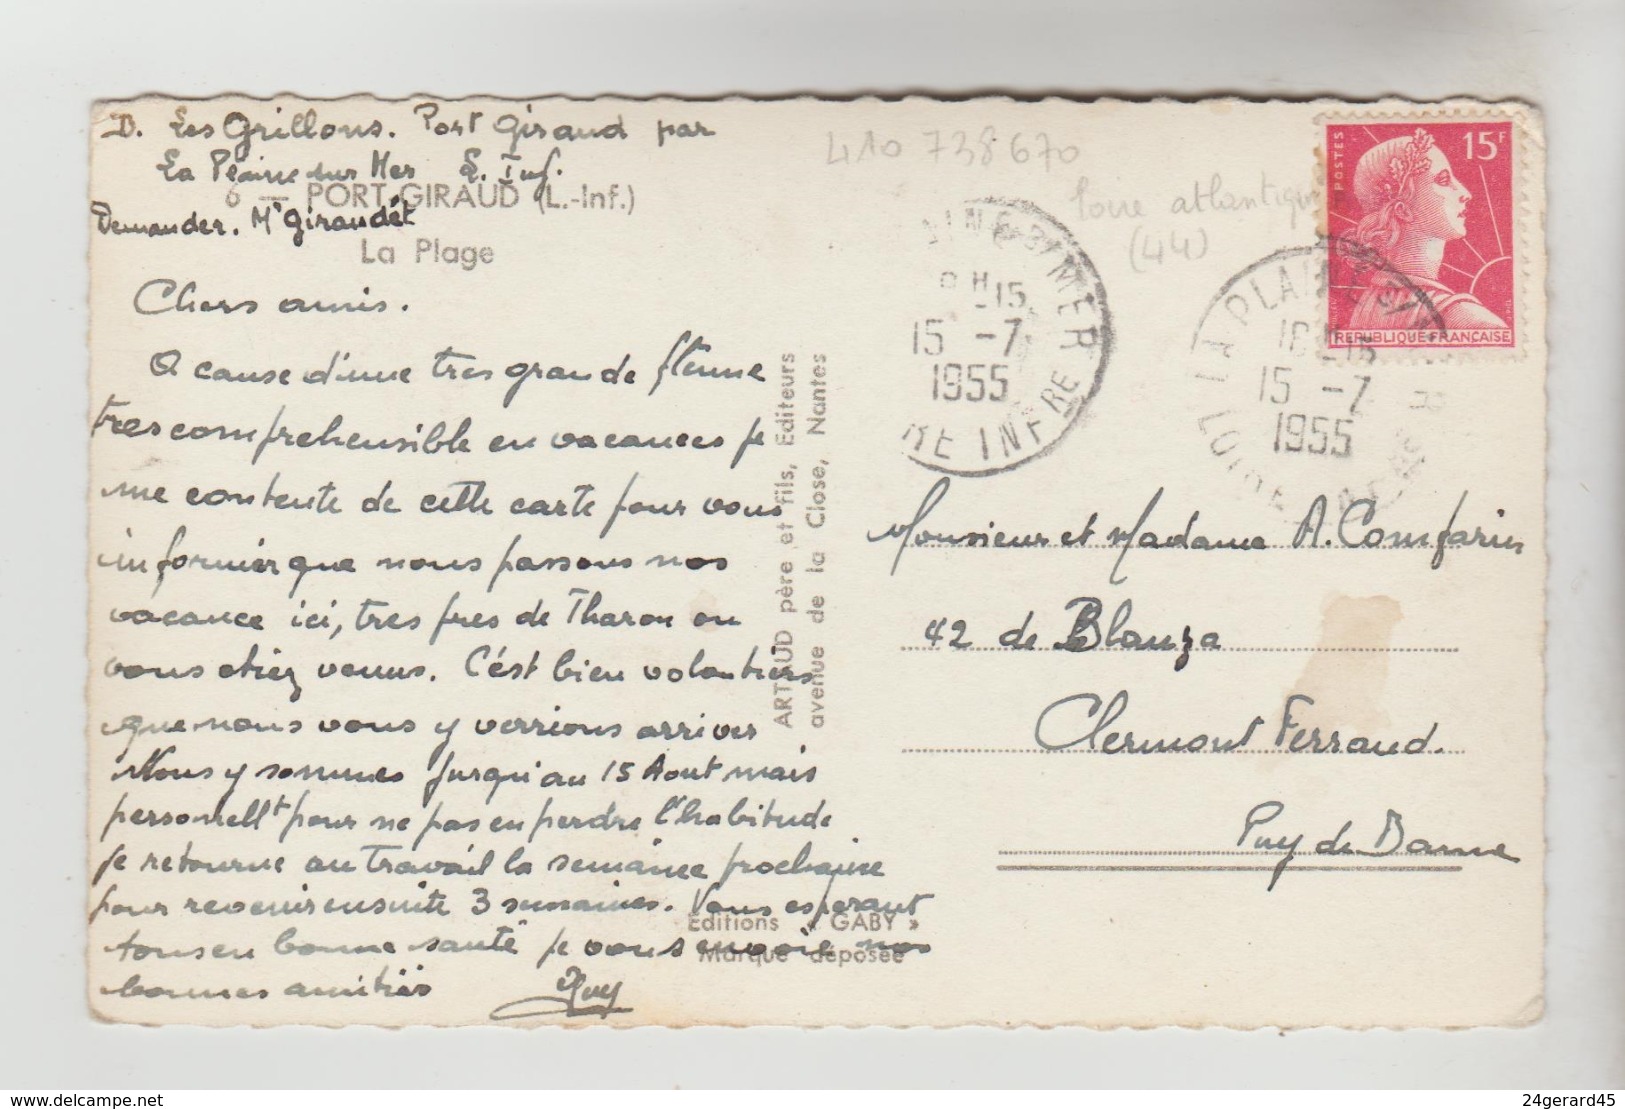 D. Les Grillons. Port Giraud par
La Plaine sur Mer L. Inf.
6 — PORT-GIRAUD (L.-Inf.)
Demander. Mr Giraudét
La Plage
Chers amis.
A cause d'une tres grande flemme
tres comprehensible en vacances je
me contente de cette carte pour vous
informier que nous passons nos
vacance ici, tres pres de Tharon ou
vous etiez venus. C'est bien volontiers
que nous vous y verrions arriver
Nous y sommes jusqu'au 15 Aout mais
personellt pour ne pas en perdre l'habitude
je retourne au travail la semaine prochaine
pour revenir ensuite 3 semaines. Vous esperant
tous en bonne santé je vous envoie nos
bonnes amitiés Guy
ARTAUD père et fils, Editeurs
avenue de la Close, Nantes
Editions « GABY »
Marque déposée
410 738 670
loire atlantique
(44)
15 -7
1955
LA PLAINE S/MER
15 -7
1955
LOIRE INFRE
POSTES
15F
REPUBLIQUE FRANÇAISE
Monsieur et Madame A. Comparin
42 de Blanza
Clermont Ferrand.
Puy de Dome
www.delcampe.net
24gerard45